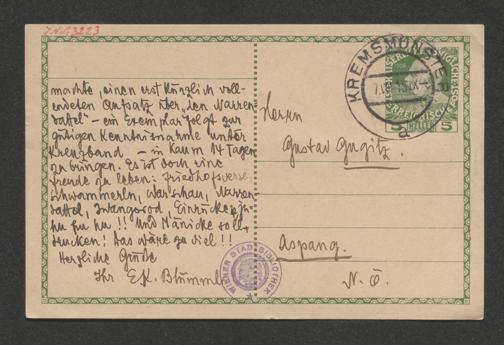 J.N. 93223
machte, einen erst kürzlich voll-
endeten Aufsatz über „den Narren-
sattel" – ein Exemplar folgt zur
gütigen Kenntnisnahme unter
Kreuzband – in kaum 14 Tagen
zu bringen. Es ist doch eine
Freude zu leben: Friedhofsverse,
Schwammerln, Warschau, Narren-
sattel, Iwangorod, Einrücke,
hu hu hu !! Und Mänicke soll
! Das wäre zu viel !!
Herzliche Grüße
Ihr E. K. Blümml
KREMSMÜNSTER
5
Herrn
Gustav Gugitz.
Aspang.
N. Ö.
WIENER STADTBIBLIOTHEK